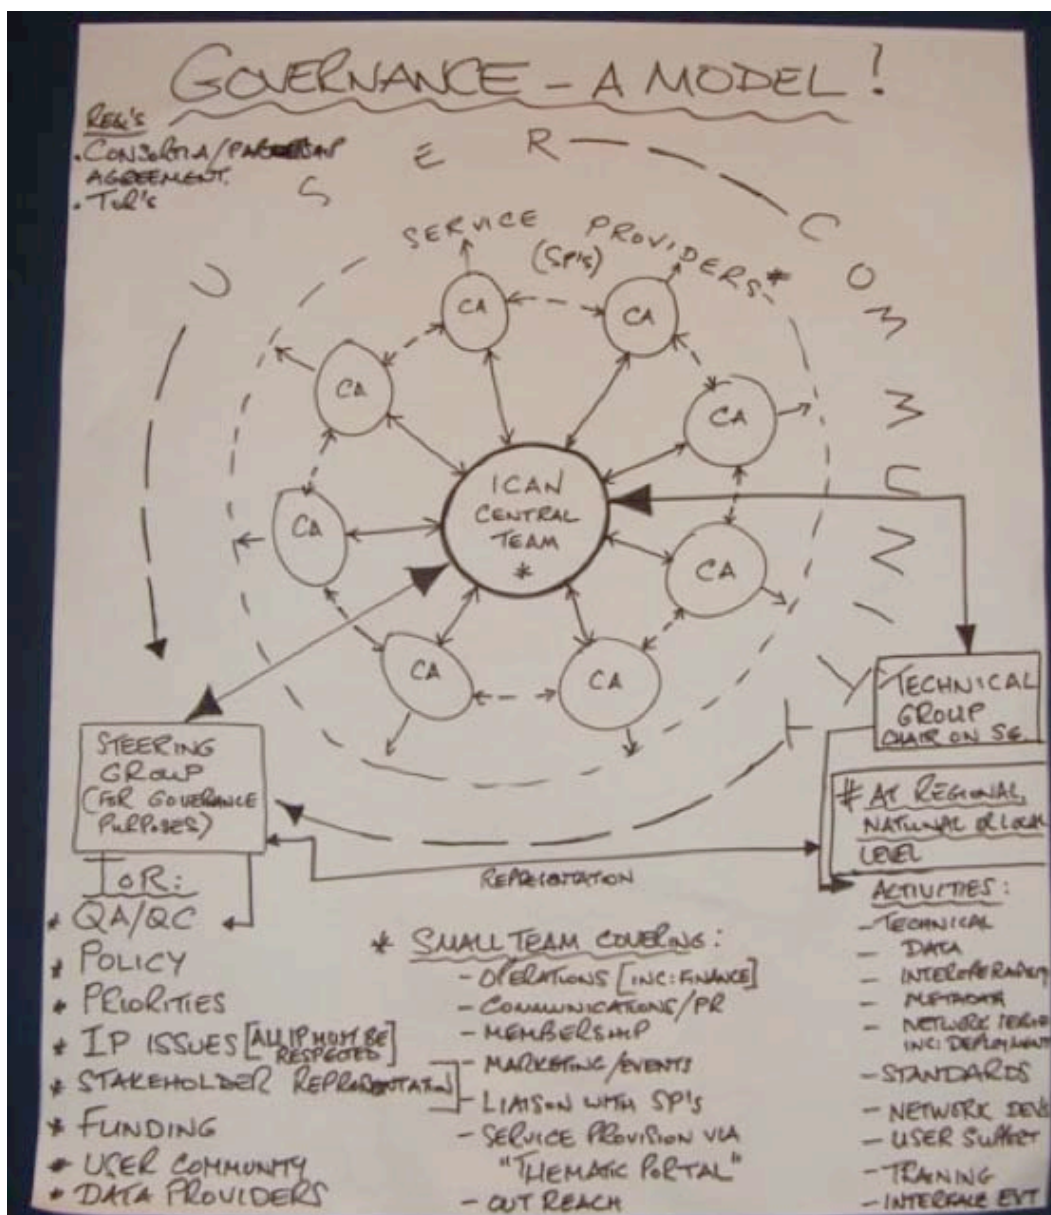 GOVERNANCE – A MODEL !
REQ'S
• CONSORTIA/PARTNERSHIP
AGREEMENT.
• ToR's
USER COMMUNITY
SERVICE PROVIDERS#
(SP'S)
CA
CA
CA
CA
CA
CA
CA
CA
ICAN
CENTRAL
TEAM
*
STEERING
GROUP
(FOR GOVERANCE
PURPOSES)
TECHNICAL
GROUP
CHAIR ON SG.
# AT REGIONAL,
NATIONAL OR LOCAL
LEVEL
REPRESENTATION
ToR:
* QA/QC
* POLICY
* PRIORITIES
* IP ISSUES [ALL IP MUST BE
RESPECTED]
* STAKEHOLDER REPRESENTATION
* FUNDING
* USER COMMUNITY
* DATA PROVIDERS
* SMALL TEAM COVERING:
– OPERATIONS [INC: FINANCE]
– COMMUNICATIONS/PR
– MEMBERSHIP
– MARKETING/EVENTS
– LIAISON WITH SP'S
– SERVICE PROVISION VIA
"THEMATIC PORTAL"
– OUT REACH
ACTIVITIES:
– TECHNICAL
– DATA
– INTEROPERABILITY
– METADATA
– NETWORK
INC: DEPLOYMENT
– STANDARDS
– NETWORK DEV'S
– USER SUPPORT
– TRAINING
– INTERFACE